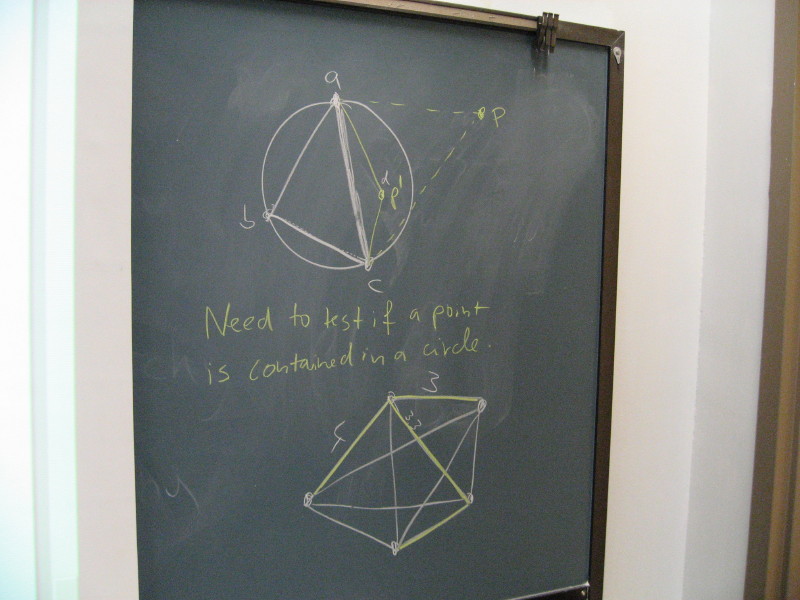 a
p
d
p'
b
c
Need to test if a point
is contained in a circle.
3